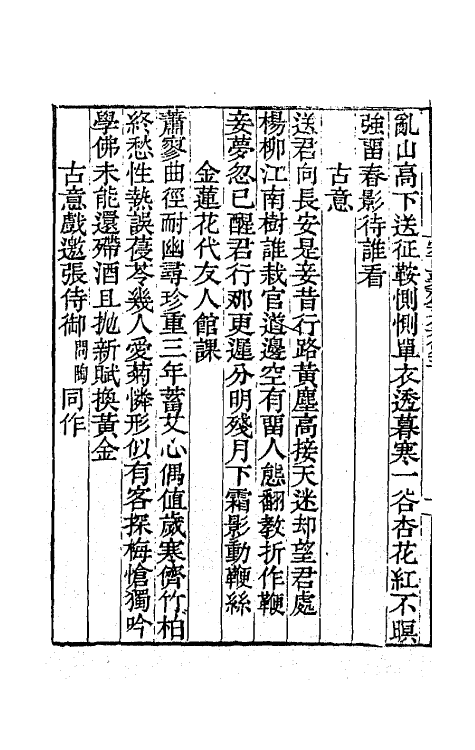 亂山高下送征鞍惻惻單衣透暮寒一谷杏花紅不暝
強畱春影待誰看
古意
送君向長安是妾昔行路黃塵高接天迷却望君處
楊柳江南樹誰栽官道邊空有畱人態翻教折作鞭
妾夢忽已醒君行那更遲分明殘月下霜影動鞭絲
金蓮花代友人館課
蕭寥曲徑耐幽尋珍重三年蓄艾心偶值歲寒儕竹柏
終愁性熱誤蔆芩幾人愛菊憐形似有客探梅愴獨吟
學佛未能還殢酒且拋新賦換黃金
古意戲邀張侍御問陶同作